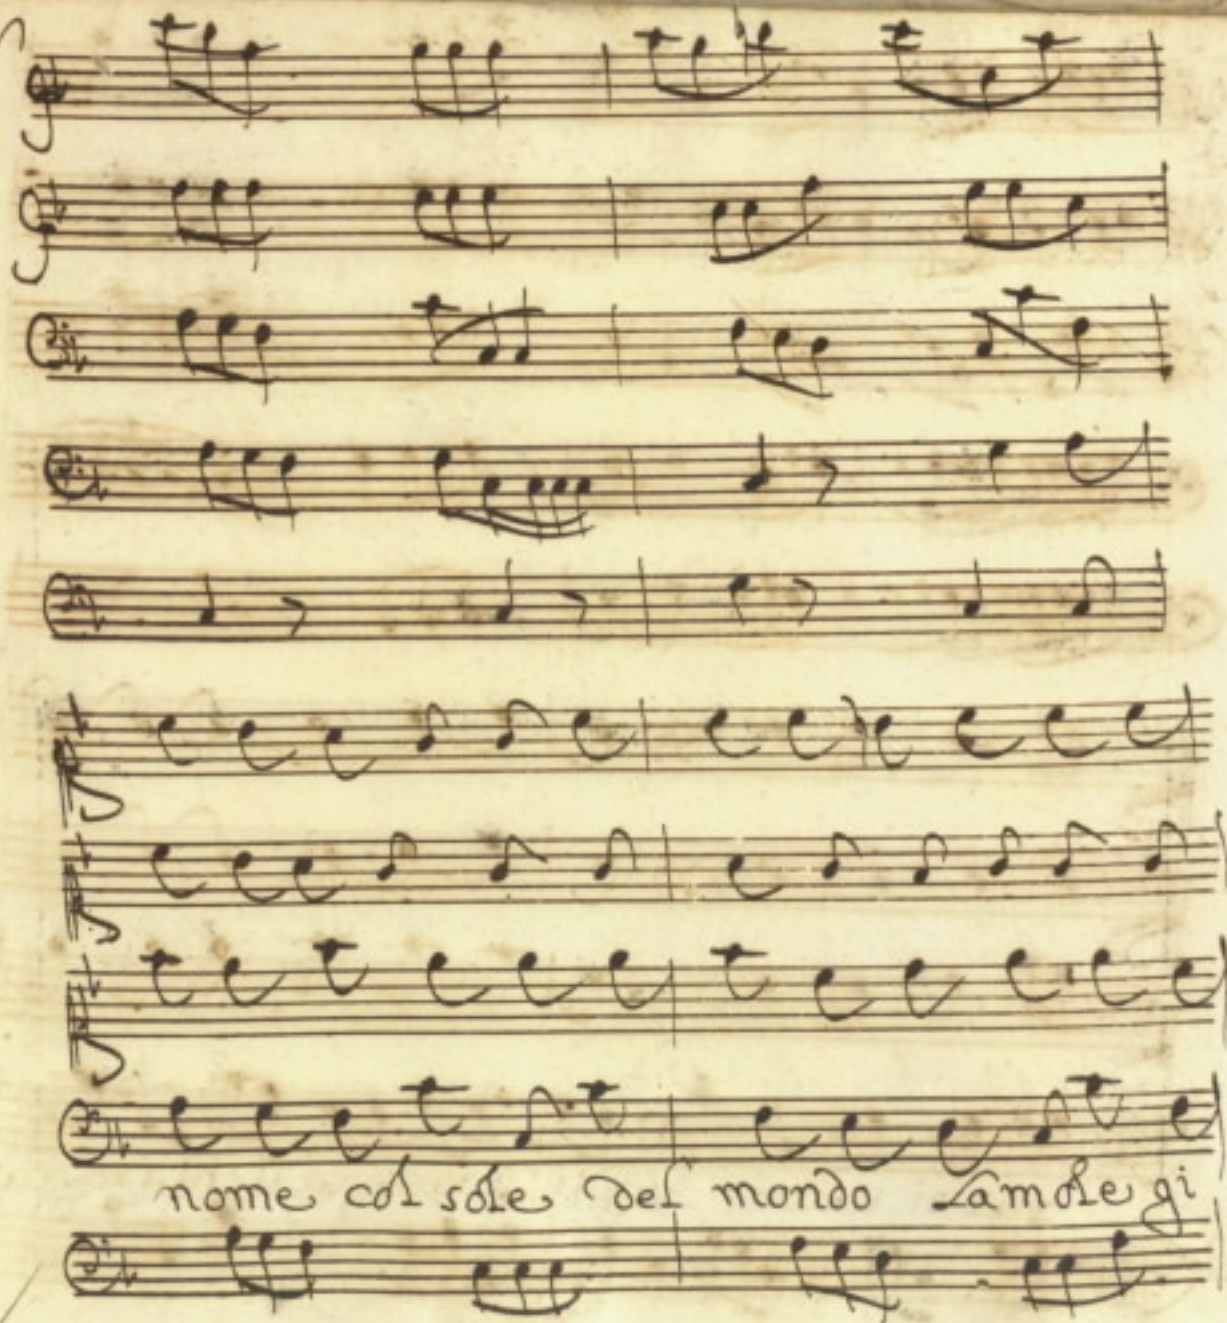 nome col sole del mondo La mole gi